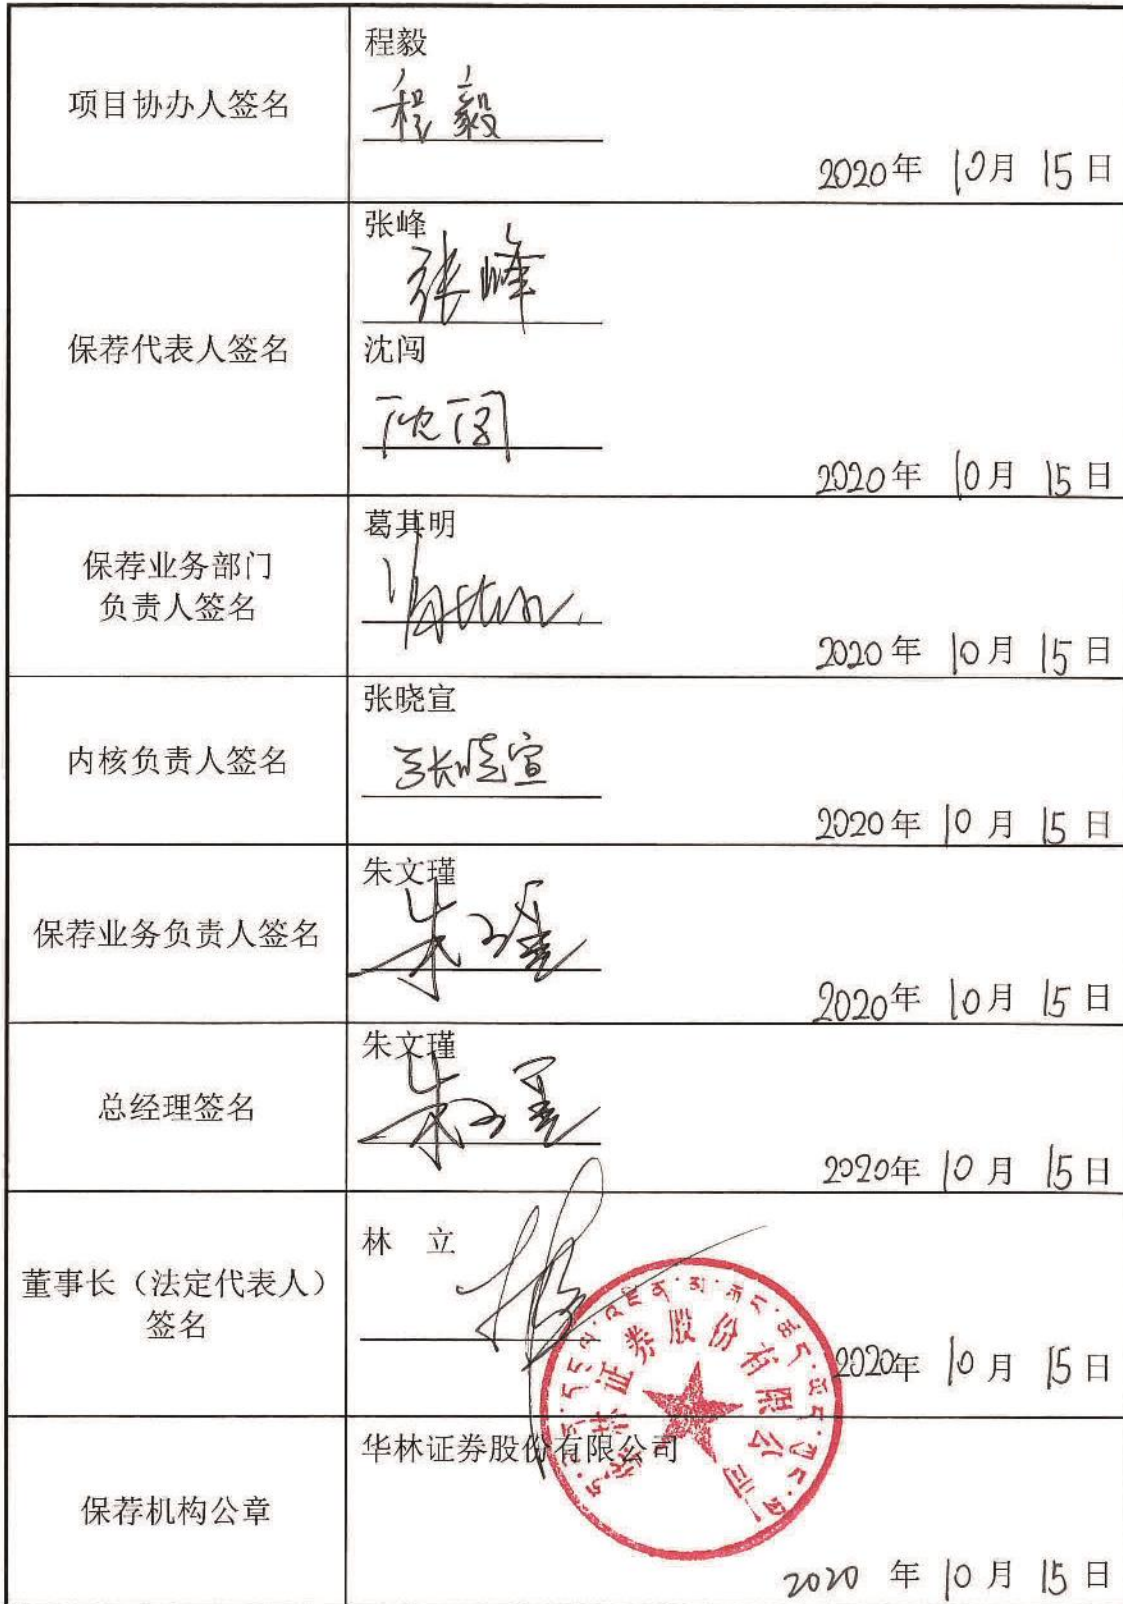 项目协办人签名
程毅
程毅
2020年 10月 15日
保荐代表人签名
张峰
张峰
沈闯
沈闯
2020年 10月 15日
保荐业务部门
负责人签名
葛其明
2020年 10月 15日
内核负责人签名
张晓宣
张晓宣
2020年 10月 15日
保荐业务负责人签名
朱文瑾
朱文瑾
2020年 10月 15日
总经理签名
朱文瑾
朱文瑾
2020年 10月 15日
董事长（法定代表人）
签名
林 立
2020年 10月 15日
华林证券股份有限公司
保荐机构公章
华林证券股份有限公司
2020 年 10月 15日